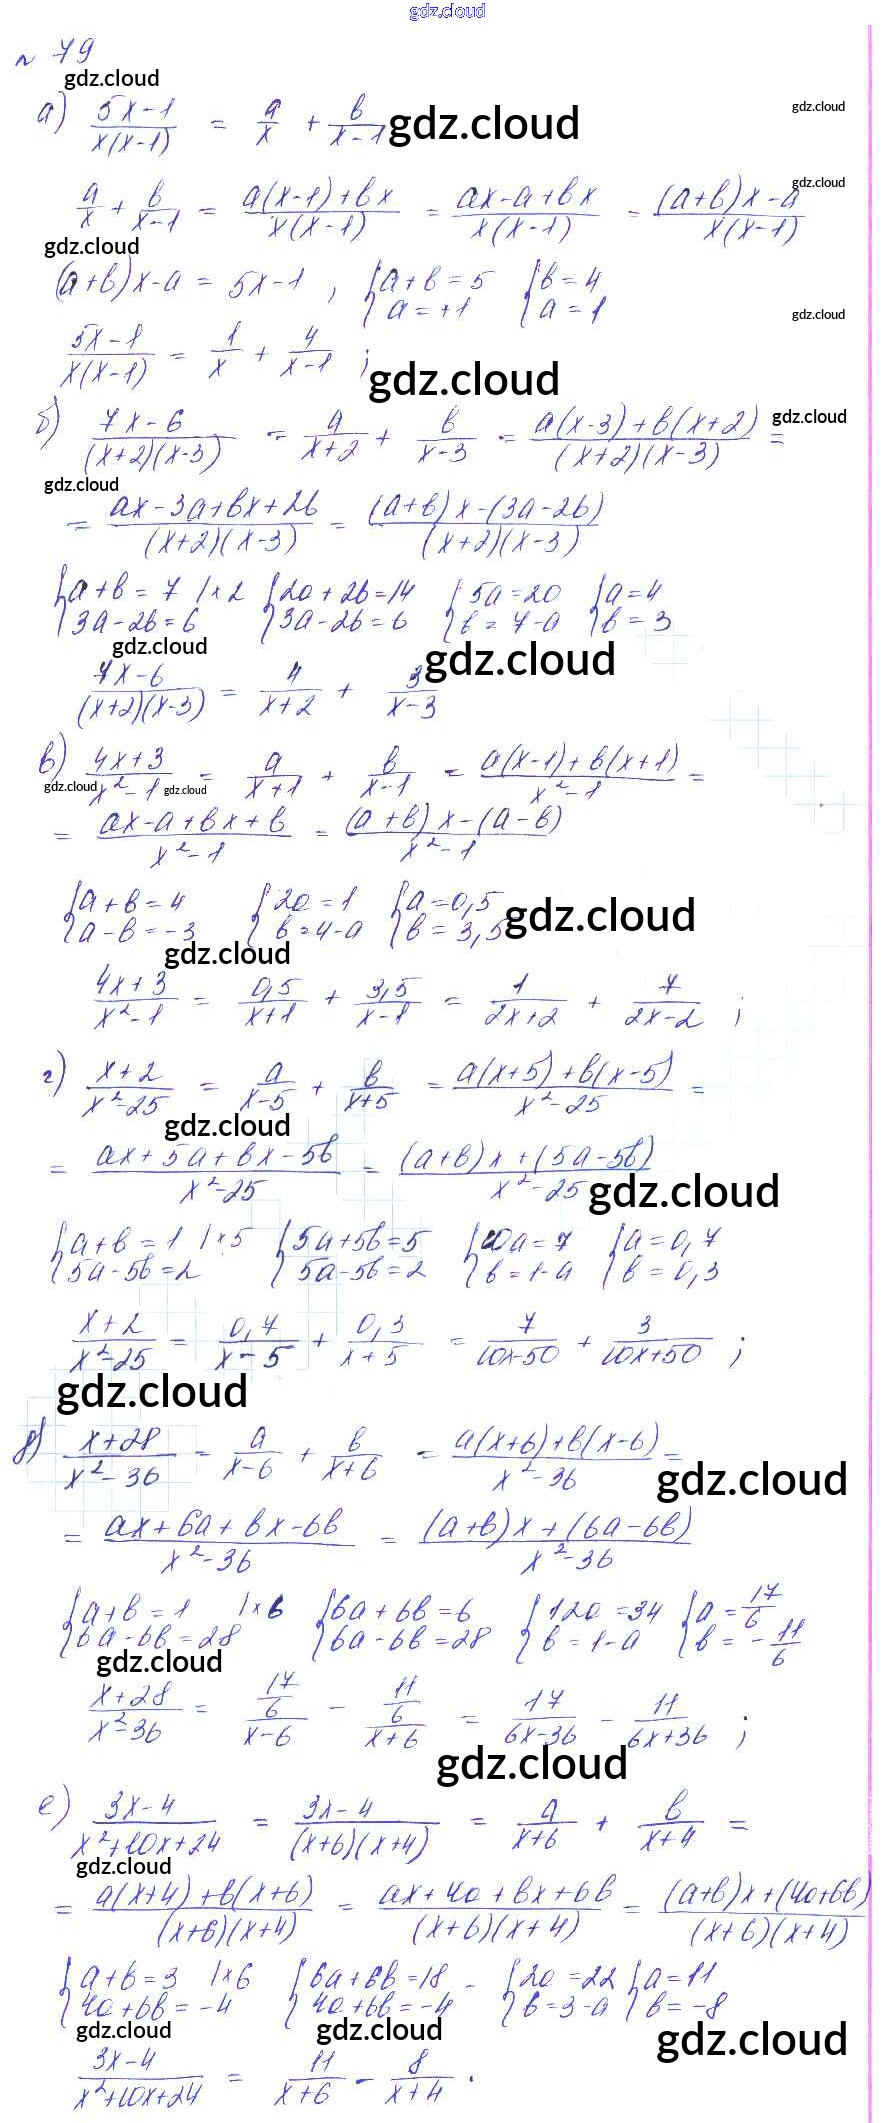 gdz.cloud
№ 79
gdz.cloud
а) (5x-1)/(x(x-1)) = a/x + b/(x-1) gdz.cloud gdz.cloud
a/x + b/(x-1) = (a(x-1)+bx)/(x(x-1)) = (ax-a+bx)/(x(x-1)) = ((a+b)x-a)/(x(x-1)) gdz.cloud
gdz.cloud
(a+b)x-a = 5x-1 , {a+b=5 {b=4
{a=+1 {a=1
gdz.cloud
(5x-1)/(x(x-1)) = 1/x + 4/(x-1) ; gdz.cloud
б) (7x-6)/((x+2)(x-3)) = a/(x+2) + b/(x-3) = (a(x-3)+b(x+2))/((x+2)(x-3)) = gdz.cloud
gdz.cloud
= (ax-3a+bx+2b)/((x+2)(x-3)) = ((a+b)x-(3a-2b))/((x+2)(x-3))
{a+b=7 |×2 {2a+2b=14 {5a=20 {a=4
{3a-2b=6 {3a-2b=6 {b=7-a {b=3
gdz.cloud gdz.cloud
(7x-6)/((x+2)(x-3)) = 4/(x+2) + 3/(x-3)
в) (4x+3)/(x²-1) = a/(x+1) + b/(x-1) = (a(x-1)+b(x+1))/(x²-1) =
gdz.cloud gdz.cloud
= (ax-a+bx+b)/(x²-1) = ((a+b)x-(a-b))/(x²-1)
{a+b=4 {2a=1 {a=0,5
{a-b=-3 {b=4-a {b=3,5 gdz.cloud
gdz.cloud
(4x+3)/(x²-1) = 0,5/(x+1) + 3,5/(x-1) = 1/(2x+2) + 7/(2x-2) ;
г) (x+2)/(x²-25) = a/(x-5) + b/(x+5) = (a(x+5)+b(x-5))/(x²-25) =
gdz.cloud
= (ax+5a+bx-5b)/(x²-25) = ((a+b)x+(5a-5b))/(x²-25) gdz.cloud
{a+b=1 |×5 {5a+5b=5 {10a=7 {a=0,7
{5a-5b=2 {5a-5b=2 {b=1-a {b=0,3
(x+2)/(x²-25) = 0,7/(x-5) + 0,3/(x+5) = 7/(10x-50) + 3/(10x+50) ;
gdz.cloud
д) (x+28)/(x²-36) = a/(x-6) + b/(x+6) = (a(x+6)+b(x-6))/(x²-36) = gdz.cloud
= (ax+6a+bx-6b)/(x²-36) = ((a+b)x+(6a-6b))/(x²-36)
{a+b=1 |×6 {6a+6b=6 {12a=34 {a=17/6
{6a-6b=28 {6a-6b=28 {b=1-a {b=-11/6
gdz.cloud
(x+28)/(x²-36) = (17/6)/(x-6) - (11/6)/(x+6) = 17/(6x-36) - 11/(6x+36) ;
gdz.cloud
е) (3x-4)/(x²+10x+24) = (3x-4)/((x+6)(x+4)) = a/(x+6) + b/(x+4) =
gdz.cloud
= (a(x+4)+b(x+6))/((x+6)(x+4)) = (ax+4a+bx+6b)/((x+6)(x+4)) = ((a+b)x+(4a+6b))/((x+6)(x+4))
{a+b=3 |×6 {6a+6b=18 - {2a=22 {a=11
{4a+6b=-4 {4a+6b=-4 {b=3-a {b=-8
gdz.cloud gdz.cloud gdz.cloud
(3x-4)/(x²+10x+24) = 11/(x+6) - 8/(x+4) .